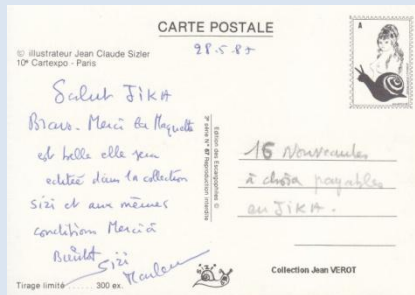 CARTE POSTALE
28.5.87
© illustrateur Jean Claude Sizler
10e Cartexpo - Paris
A
Salut JIKA
Bravo. Merci la Maquette
est belle elle sera
editée dans la collection
sizi et aux mêmes
conditions Merci à
Bientôt
Sizi
Edition des Escargophiles ©
3e série N° 87 Reproduction interdite
16 Nouveautes
à choix payables
en JIKA.
Tirage limité ...... 300 ex.
Collection Jean VEROT